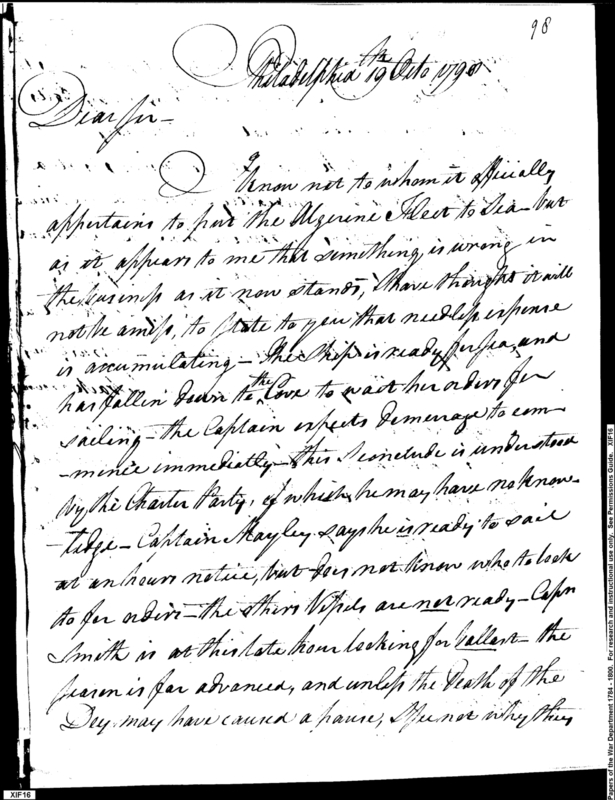 98
Philadelphia 19th Octo 1798
Dear Sir –
I
know not to whom it officially
appertains to put the Algerine Fleet to Sea – but
as it appears to me that something is wrong in
the business as it now stands, I have thought it will
not be amiss, to state to you that needless expense
is accumulating – The Ship is ready for sea, and
has fallen down to the Cove to wait her orders for
sailing – the Captain expects demurrage to com-
-mence immediatly – this I conclude is understood
by the Charter Party, of which he may have no know-
-ledge – Captain Mayley says he is ready to sail
at an hours notice, but does not know who to look
to for orders – the others Vessels are not ready – Capn
Smith is at this late hour looking for ballast – the
season is far advanced, and unless the Death of the
Dey may have caused a pause, I see not why they
XIF16
Papers of the War Department 1784 - 1800. For research and instructional use only. See Permissions Guide. XIF16